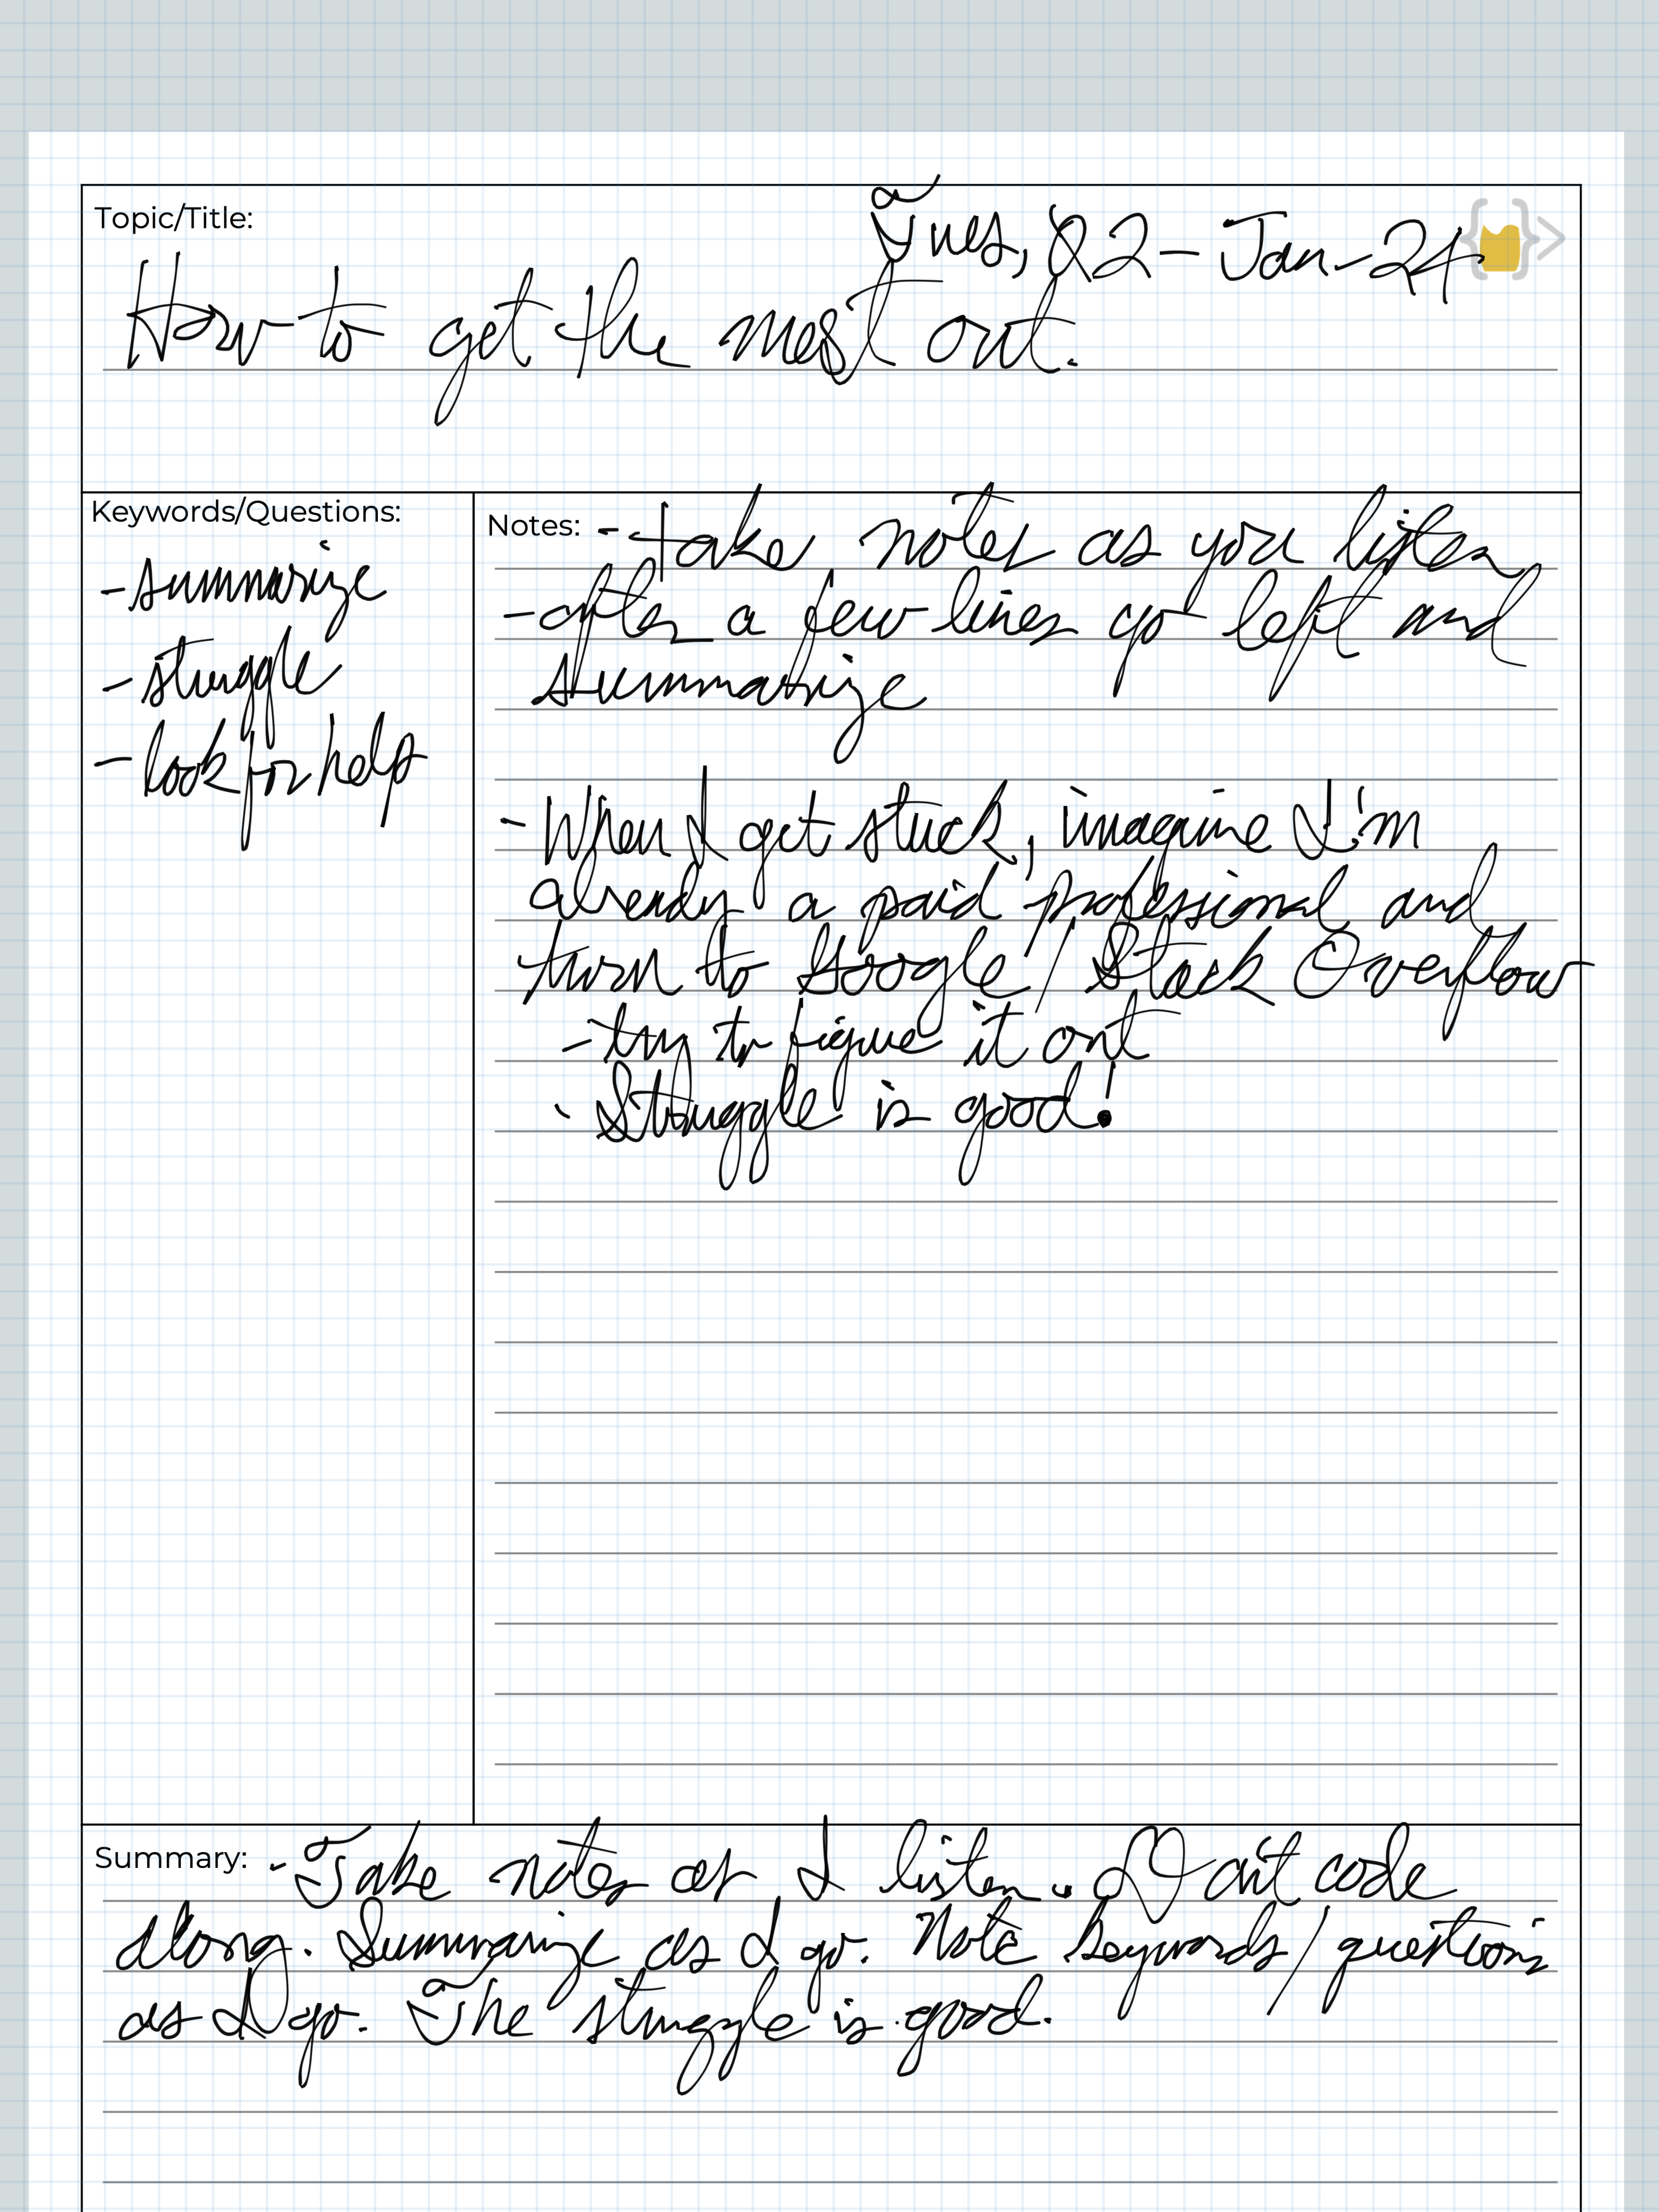 Topic/Title:
Tues, 02-Jan-24
How to get the most out.
Keywords/Questions:
- summarize
- struggle
- look for help
Notes: - take notes as you listen
- after a few lines go left and
summarize
- When I get stuck, imagine I'm
already a paid professional and
turn to Google / Stack Overflow
- try to figure it out
- Struggle is good!
Summary: - Take notes as I listen. code
along. Summarize as I go. Note keywords/questions
as I go. The struggle is good.